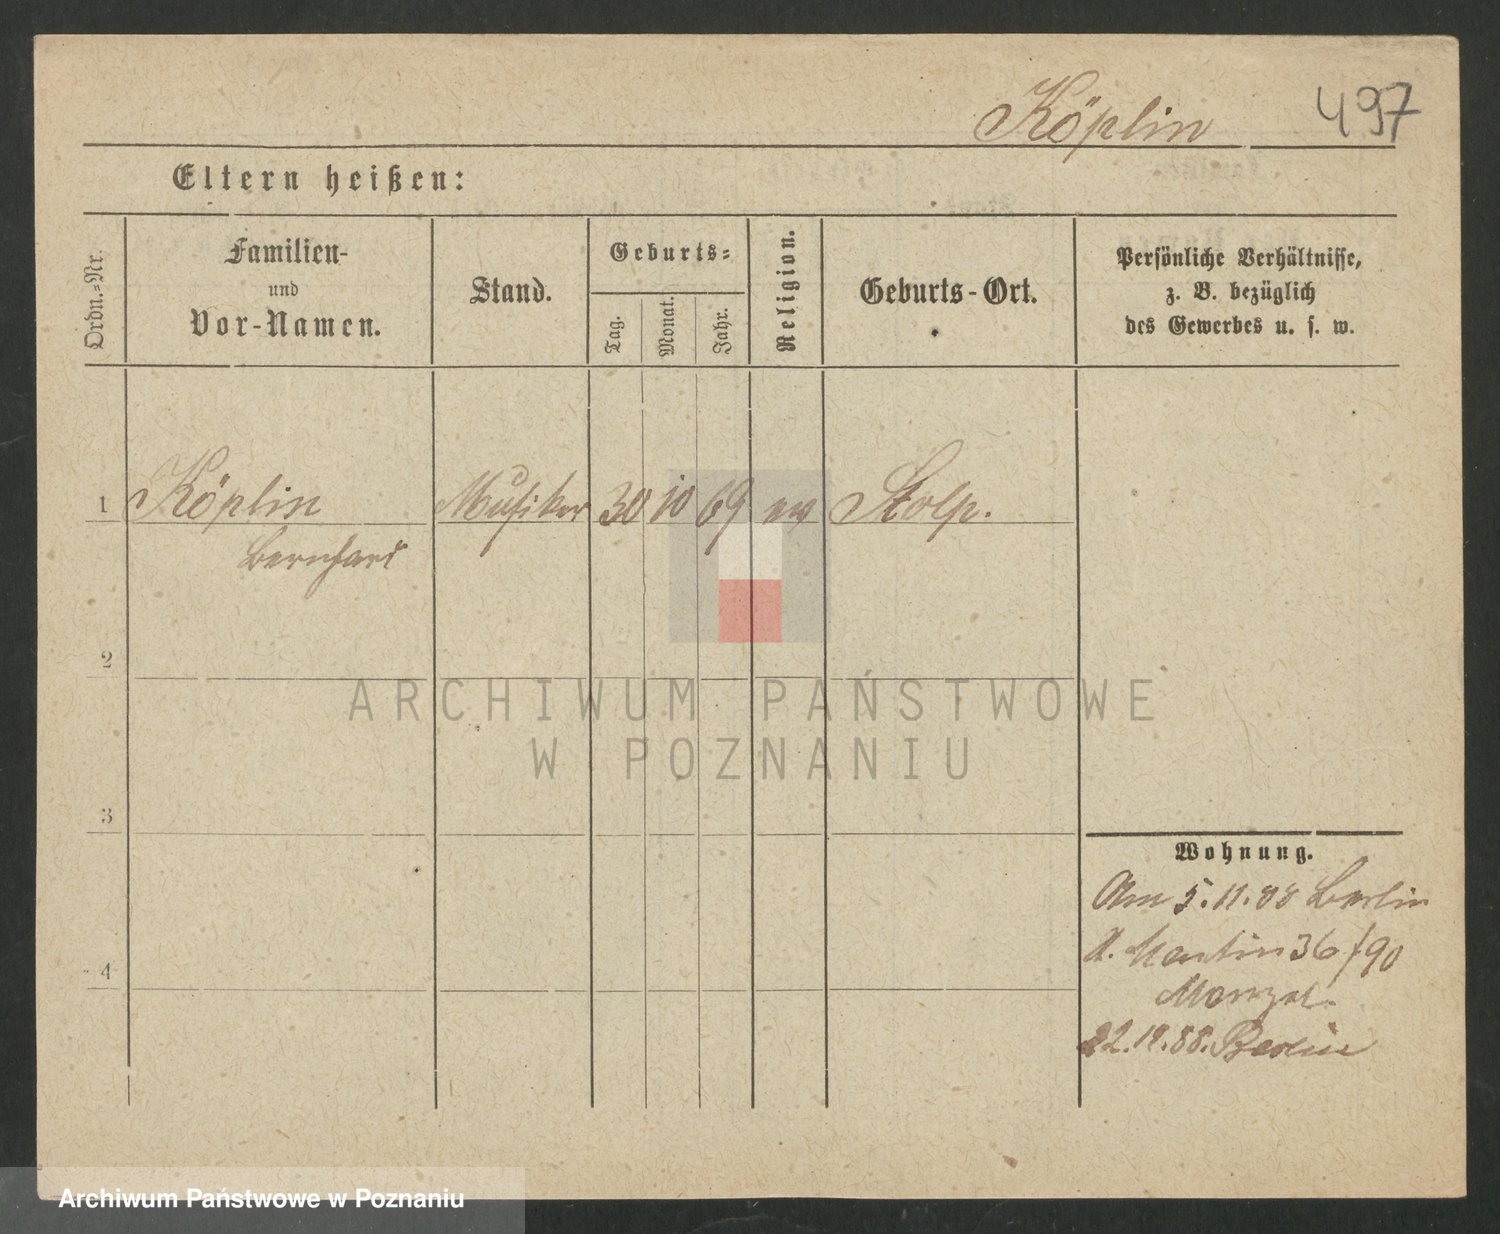 Köplin 497
Eltern heißen:
Ordn.-Nr.
Familien-
und
Vor-Namen.
Stand.
Geburts-
Tag.
Monat.
Jahr.
Religion.
Geburts-Ort.
Persönliche Verhältnisse,
z. B. bezüglich
des Gewerbes u. s. w.
1 Köplin Musiker 30 10 69 ev Stolp.
Bernhard
2
3
4
Wohnung.
Am 5.11.88 Berlin
St. Martin 36/90
22.12.88. Berlin
ARCHIWUM PAŃSTWOWE
W POZNANIU
Archiwum Państwowe w Poznaniu